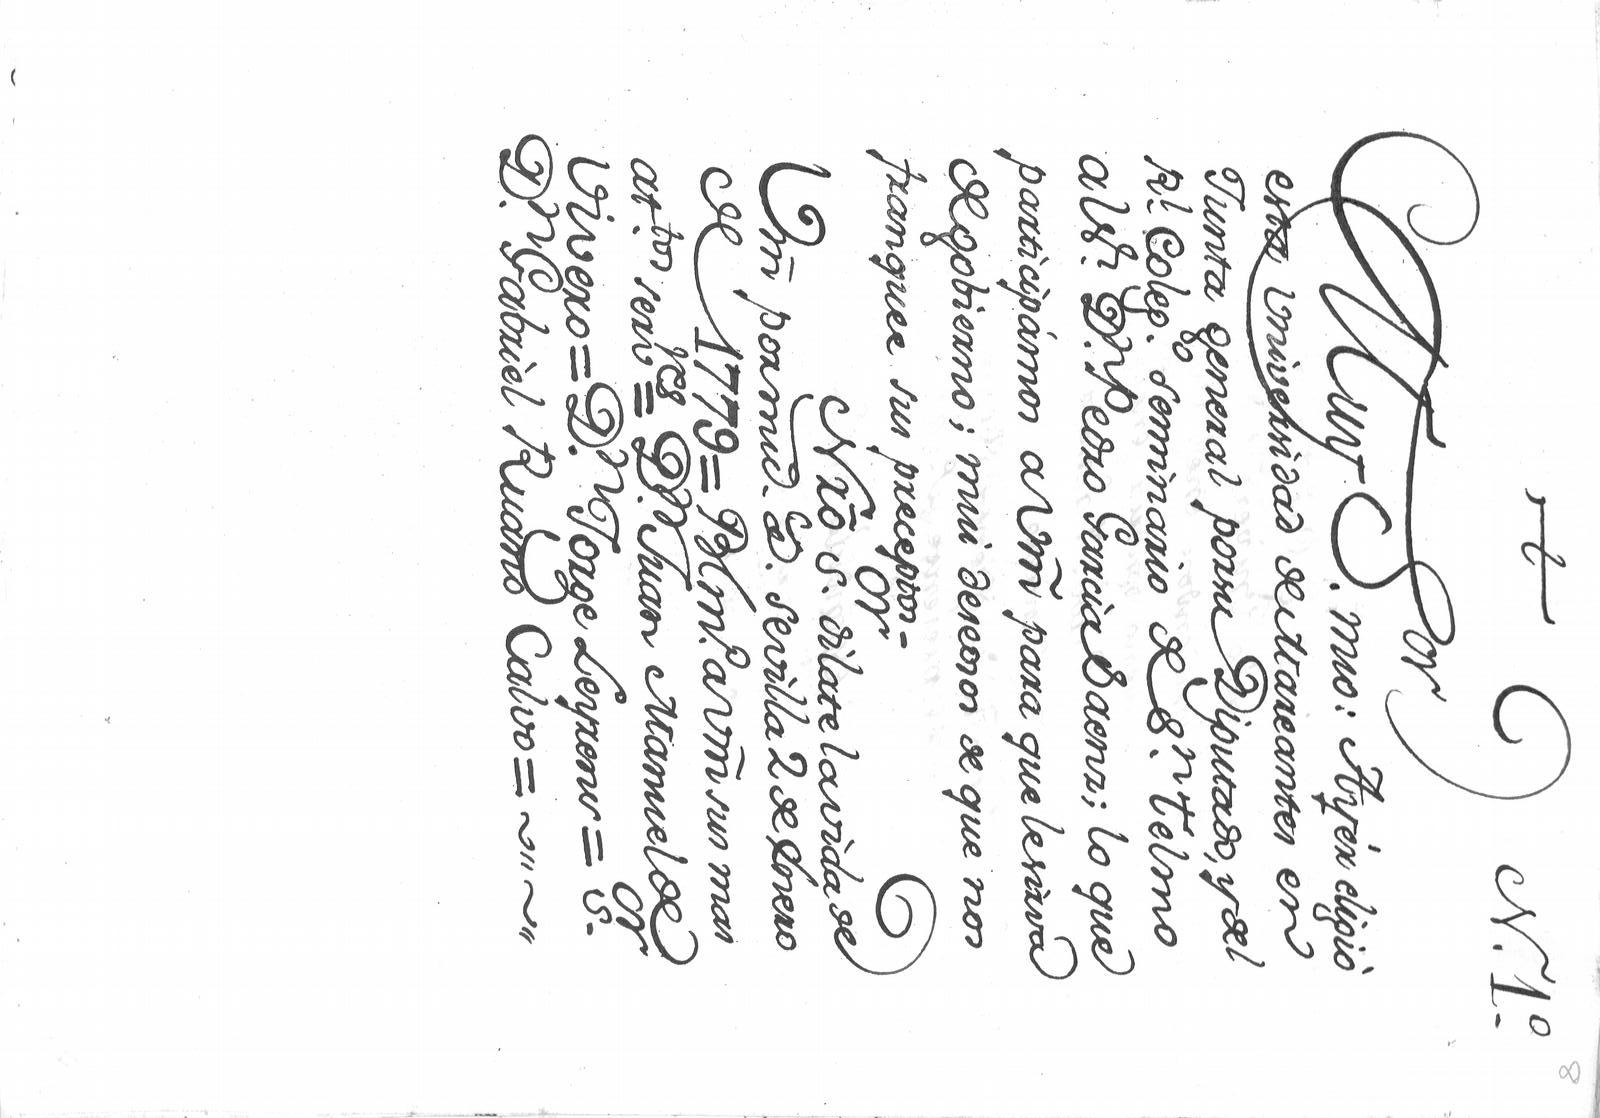 N. 1º
8
Muy S.or mio: Ayér eligió
esta Universidad de Mareantes en
Junta general por su Diputado, y del
Rl. Coleg.o Seminario de S.n Telmo
al S.r D.n Pedro Garcia Saenz; lo que
participámos a Vm̃ para que le sirva
de gobierno; mui deseosos de que nos
franquee sus preceptos-
Nr̃o S.or dilate la vida de
Vm̃ por m.s a.s Sevilla 2 de Enero
de 1779= BLm. a Vm̃ sus mas
at.tos serv.res = D.n Juan Manuel de
Vivero= D.n Jorge Leyxens= S.or
D.n Gabriel Ruano Calvo=